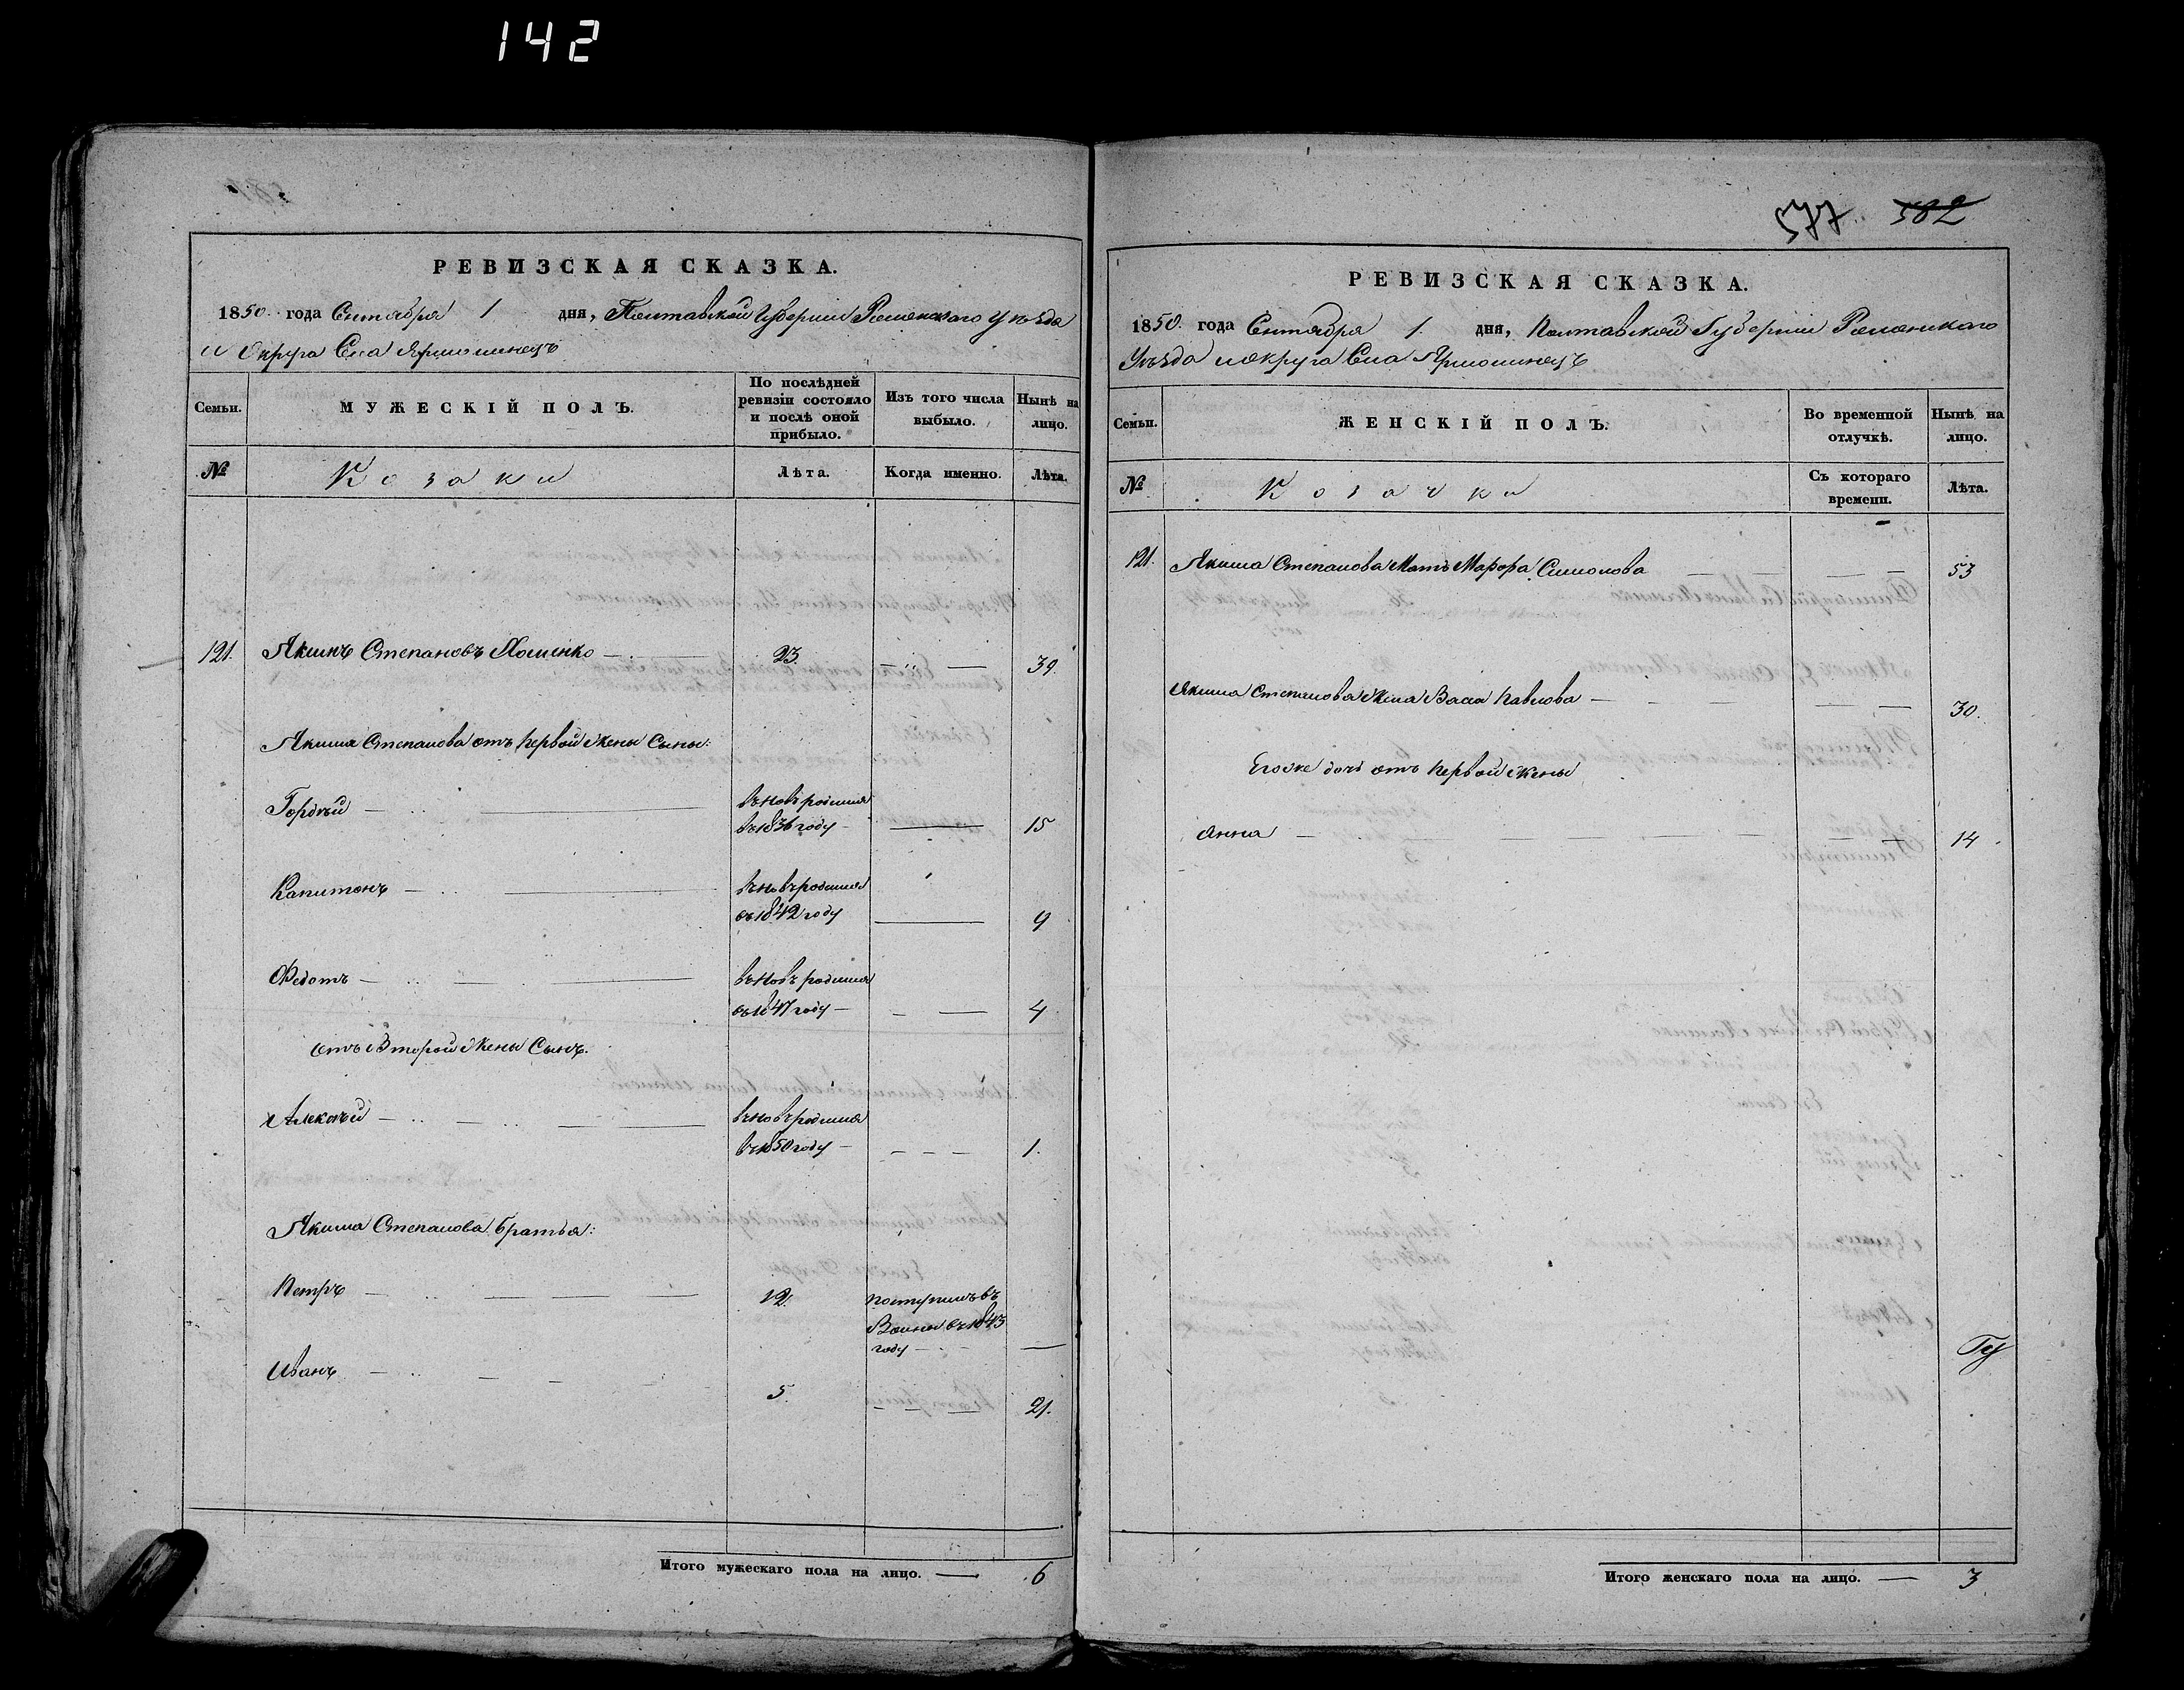 142
РЕВИЗСКАЯ СКАЗКА.
1850. года Сентября 1 дня, Полтавской Губернии Роменского Уезда
и Округа Села Ярмолинецъ
Семьи.
МУЖЕСКІЙ ПОЛЪ.
По послѣдней ревизіи состояло и послѣ оной прибыло.
Изъ того числа выбыло.
Нынѣ на лицо.
№
Козаки
Лѣта.
Когда именно.
Лѣта.
121. Якимъ Степановъ 23. 39.
Якима Степанова отъ первой жены Сыны:
Гордѣй вновь родился
въ 1836 году 15
Капитонъ вновь родился
въ 1842 году 9
Федотъ вновь родился
въ 1847 году 4
отъ второй жены Сынъ.
Алексѣй вновь родился
въ 1850 году 1.
Якима Степанова братья:
Петръ 12. поступилъ въ
въ 1843
году
Иванъ 5. 21.
Итого мужескаго пола на лицо. 6
577 582
РЕВИЗСКАЯ СКАЗКА.
1850. года Сентября 1. дня, Полтавской Губерніи Роменского
Уѣзда и округа Села Ярмолинецъ
Семьи.
ЖЕНСКІЙ ПОЛЪ.
Во временной отлучкѣ.
Нынѣ на лицо.
№
Козачки
Съ котораго времени.
Лѣта.
121. Якима Степанова Мать Марфа Симонова 53
Якима Степанова жена Васа Павлова 30.
Его же дочь отъ первой жены
Анна 14
Итого женскаго пола на лицо. 3